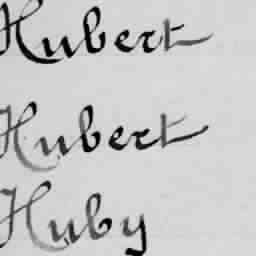 Hubert
Hubert
Huby